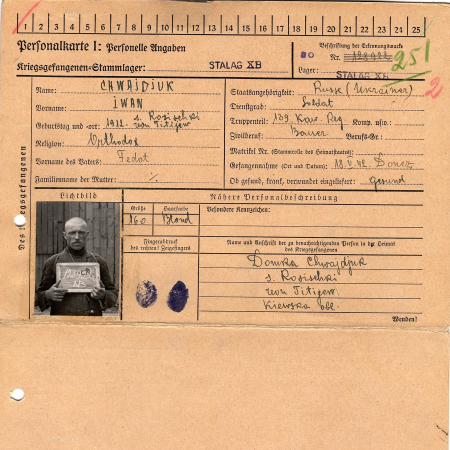 1 2 3 4 5 6 7 8 9 10 11 12 13 14 15 16 17 18 19 20 21 22 23 24 25
Personalkarte I: Personelle Angaben
Kriegsgefangenen-Stammlager: STALAG XB
Beschriftung der Erkennungsmarke
Nr.
Lager: STALAG XB
251
2
Des Kriegsgefangenen
Name: CHWAJDJUK
Vorname: IWAN
Geburtstag und -ort: 1912. s. Rosischki
rson Titijew
Religion: Orthodox
Vorname des Vaters: Fedot
Familienname der Mutter: %
Staatsangehörigkeit: Russe (Ukrainer)
Dienstgrad: Soldat
Truppenteil: 139. Kaw. Reg Komp. usw.:
Zivilberuf: Bauer Berufs-Gr.:
Matrikel Nr. (Stammrolle des Heimatstaates):
Gefangennahme (Ort und Datum): 18.V.42. Donez
Ob gesund, krank, verwundet eingeliefert: gesund
Lichtbild
Nähere Personalbeschreibung
Größe
Haarfarbe
Besondere Kennzeichen:
160
Blond
Fingerabdruck
des rechten! Zeigefingers
Name und Anschrift der zu benachrichtigenden Person in der Heimat
des Kriegsgefangenen
Domka Chwajdjuk
s. Rosischki
rson Titijew
Kiewska obl.
Wenden!